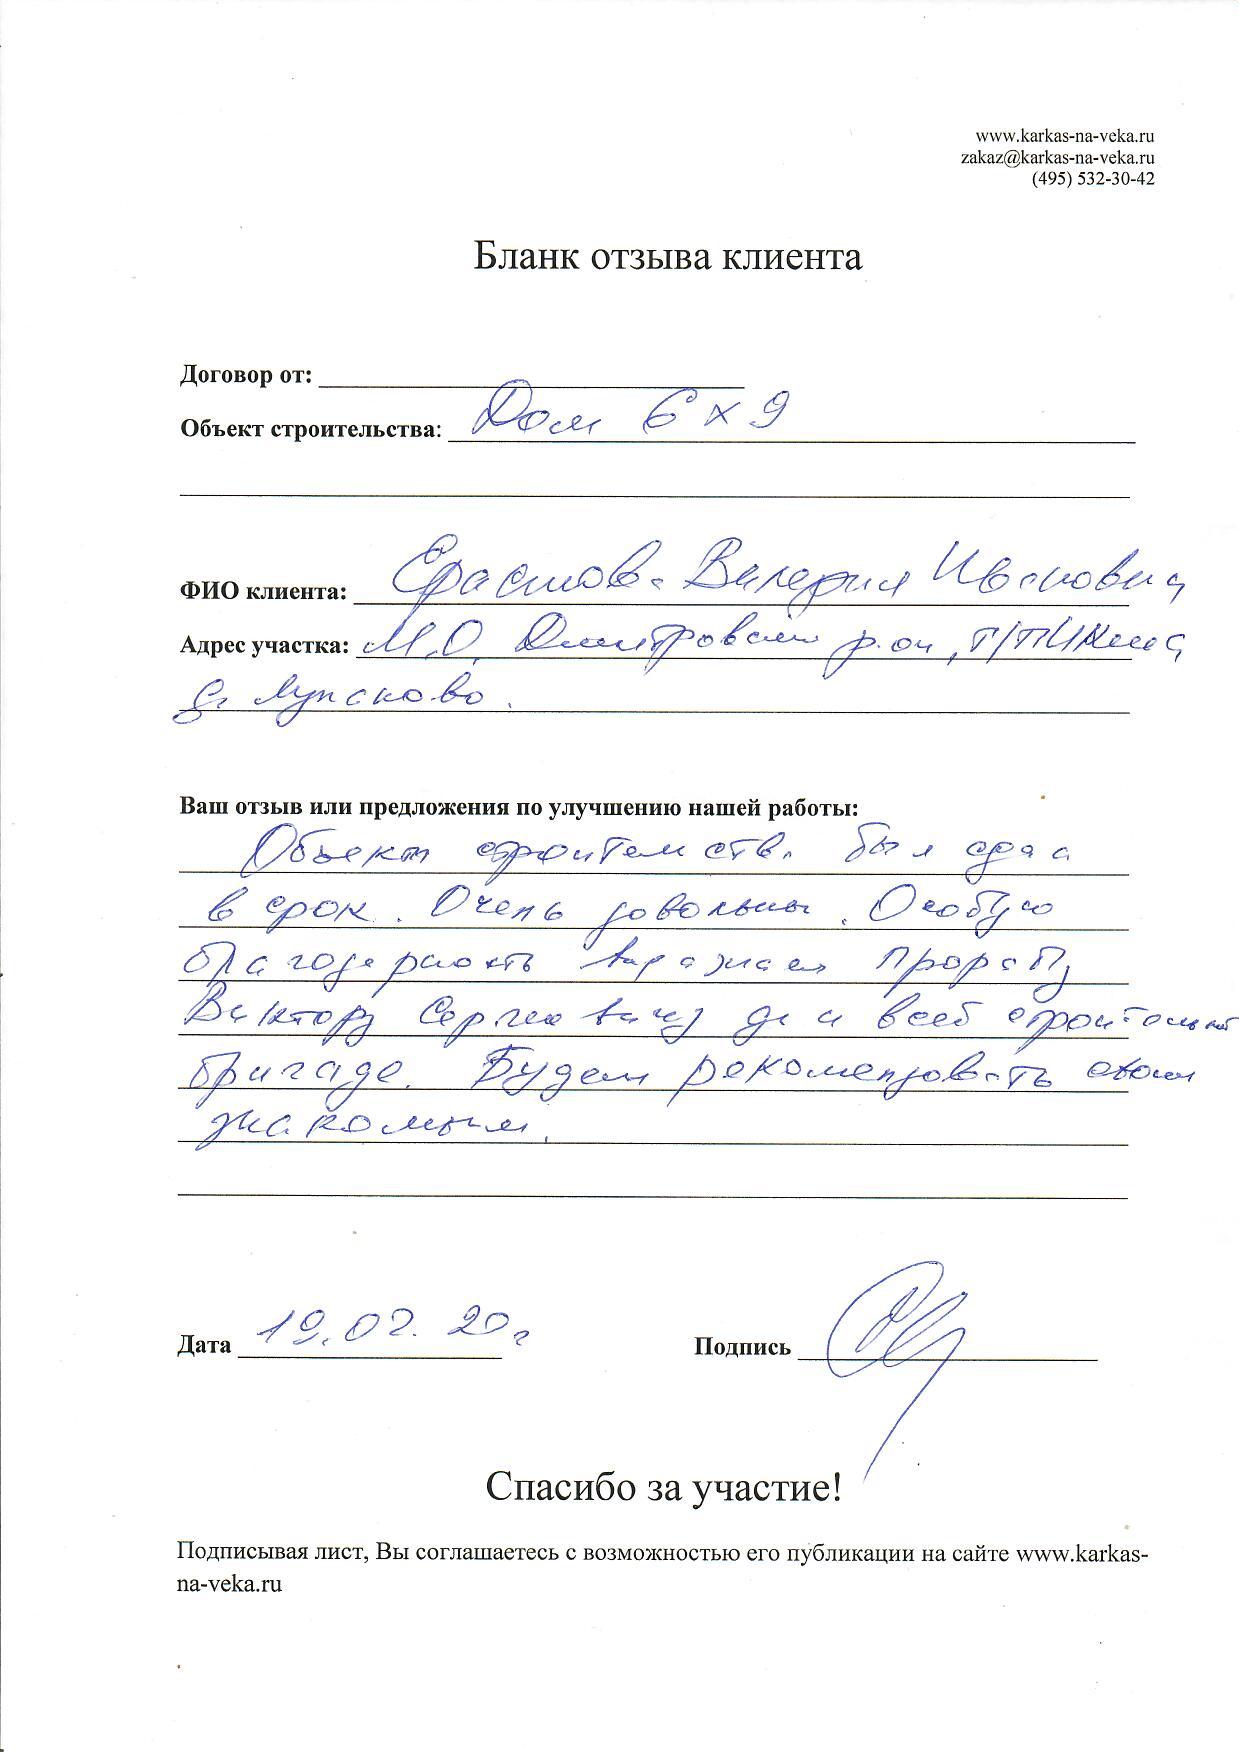 www.karkas-na-veka.ru
zakaz@karkas-na-veka.ru
(495) 532-30-42
Бланк отзыва клиента
Договор от:
Объект строительства: Дом 6 х 9
ФИО клиента: Ерастова Валерия Ивановна
Адрес участка: М.О. Дмитровский р-он,
д.
Ваш отзыв или предложения по улучшению нашей работы:
Объект строительства был сдан
в срок. Очень довольны. Особую
благодарность выражаем прорабу
Виктору Сергеевичу и всей строительной
бригаде. Будем рекомендовать своим
знакомым.
Дата 19.02.20г Подпись
Спасибо за участие!
Подписывая лист, Вы соглашаетесь с возможностью его публикации на сайте www.karkas-
na-veka.ru